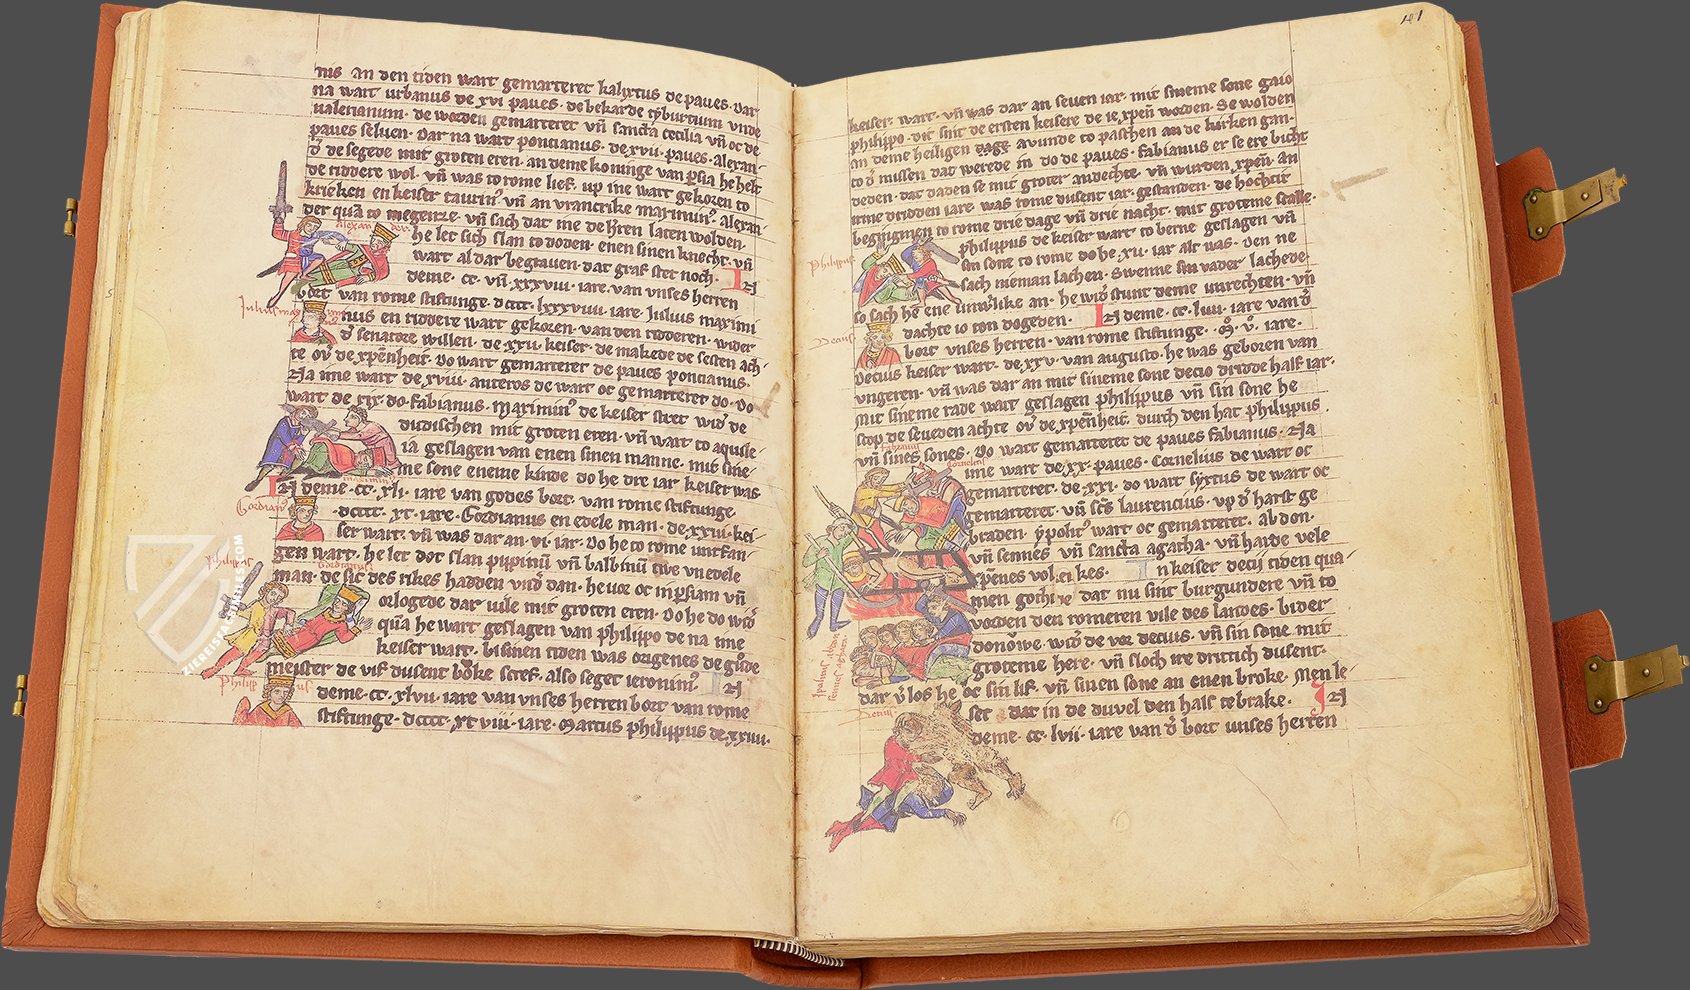 nis an den tiden wart gemarteret kalyxtus de paues. Dar
na wart urbanus de xvi paues. de bekarde tyburtium unde
ualerianum. de worden gemarteret uñ sancta cecilia uñ oc de
paues seluen. Dar na wart poncianus. de xvii. paues. alexan-
de segede mit groten eren. an deme koninge van persia he helt
de riddere wol. uñ was to rome lief. up ine wart gekoren to
krieken en keiser taurin9 uñ an vrancrike maximin9. alexan-
der quā to megenze. uñ sach dat me de hren laten wolden.
Alexan der
he let sich slan to doden. enen sinen knecht. uñ
wart al dar begrauen. dat graf stet noch. IN
deme. cc. uñ. xxxviii. iare. van unses herren
bort van rome stiftunge. dcccc. lxxxviiii. iare. Julius maximi
Julius max
nus en riddere wart gekoren. van den ridderen. wider
senatore willen. de xxii. keiser. de makede de sesten ach-
te ou9 de xpēnheit. Do wart gemarteret de paues poncianus.
Na ime wart de xviii. anteros de wart oc gemarteret do. Do
wart de xix. do. fabianus. Maximin9 de keiser stret wid9 de
dudischen mit groten eren. uñ wart to aquile-
iā geslagen van enen sinen manne. mit sine-
me sone eneme kinde do he dre iar keiser was
maximin9
IN deme. cc. xli. iare van godes bort. van rome stiftunge
Gordian9
dcccc. xc. iare. Gordianus en edele man. de xxiii. kei-
ser wart. uñ was dar an. vi. iar. Do he to rome untfan-
gen wart. he let dot slan pupinū uñ balbinū twe vn edele
Philippus
Gordianus
man. de sic des rikes hadden vnd9 dan. he uor oc in psiam uñ
orlogede dar uile mit groten eren. Do he do wid9
quā he wart geslagen van philippo de na ime
keiser wart. bi sinen tiden was origenes de gude
meister de vif dusent boke scref. also seget ieronim9. IN
Philipp us
deme. cc. xlvii. iare van unses herren bort van rome
stiftunge. dcccc. xc viii. iare. Marcus philippus de xxiiii.
101
keiser. wart. uñ was dar an seuen iar. mit sineme sone gaio
philippo. dit sint de ersten keisere de ie xpēn worden. Se wolden
an deme heiligen dage auunde to paschen an de kirken gan.
to d9 missen dat werede in do de paues. fabianus er se ere bicht
deden. dat daden se mit groter andechte uñ wurden xpēn. an
irme dridden iare. was rome dusent iar. gestanden. de hochtit
begingmen to rome drie dage uñ drie nacht. mit groteme scalle.
Philippus
philippus de keiser wart to berne geslagen uñ
sin sone to rome do he. xii. iar alt was. den ne
sach nieman lachen. Swenne sin vader lachede.
so sach he ene unwlike an. he wid9 stunt deme unrechten. uñ
dachte io ton dogeden. IN deme. cc. liiii. iare van d9
Decius
bort unses herren. van rome stiftunge. M. v. iare.
Decius keiser wart. de xxv. van augusto. he was geboren van
ungeren. uñ was dar an mit sineme sone decio dridde half iar.
Mit sineme rade wart geslagen philippus uñ sin sone he
stop de seueden achte ou9 de xpēnheit. durch den hat philippus
uñ sines sones. Do wart gemarteret de paues fabianus. Na
fabianus
Cornelius
ime wart de xx. paues. Cornelius de wart oc
gemarteret. de xxi. do wart syxtus de wart oc
gemarteret. uñ scs laurencius. up d9 harst ge
braden. ypolit9 wart oc gemarteret. abdon.
uñ sennes uñ sancta agatha. uñ harde vele
xpēnes volkes. In keiser decij tiden qua-
men dat nu sint burgundere uñ to
vorden den romeren vile des landes. bider
donowe. wid9 de vor decius. uñ sin sone mit
groteme here. uñ sloch ire drittich dusent.
dar v9los he oc sin lif. uñ sinen sone an enen broke. Men le-
Decius
set dat in de duvel den hals tebrake. IN
deme. cc. lvii. iare van d9 bort unses herren
ZIEREIS FACSIMILES.COM